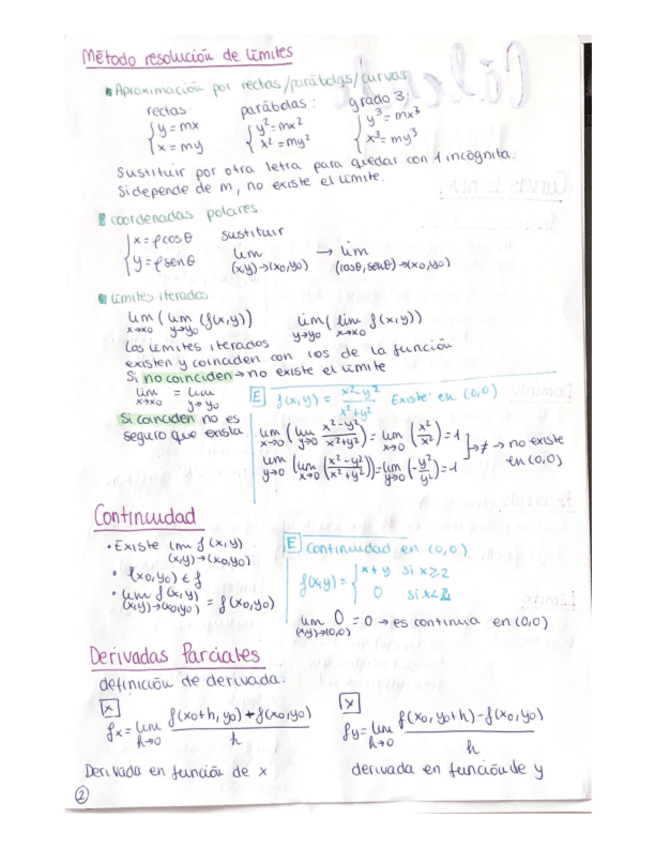 Método resolución de límites
Aproximación por rectas/parábolas/curvas
rectas: parábolas: grado 3:
{ y = mx { y² = mx² { y³ = mx³
x = my x² = my² x³ = my³
Sustituir por otra letra para quedar con 1 incógnita.
Si depende de m, no existe el límite.
coordenadas polares
{ x = ρcosθ sustituir
y = ρsenθ lim (x,y)→(x0,y0) → lim (cosθ, senθ)→(x0,y0)
límites iterados
lim x→x0 ( lim y→y0 (f(x,y)) lim y→y0 ( lim x→x0 f(x,y))
Los límites iterados
existen y coinciden con los de la función
Si no coinciden → no existe el límite
lim x→x0 = lim y→y0
Si coinciden no es
seguro que exista
E f(x,y) = x²-y² / x²+y² Existe en (0,0)
lim x→0 ( lim y→0 x²-y² / x²+y² ) = lim x→0 ( x² / x² ) = 1
lim y→0 ( lim x→0 ( x²-y² / x²+y² )) = lim y→0 ( -y² / y² ) = -1
} → ≠ → no existe
en (0,0)
Continuidad
• Existe lim f(x,y)
(x,y)→(x0,y0)
• (x0,y0) ∈ f
• lim f(x,y) (x,y)→(x0,y0) = f(x0,y0)
E Continuidad en (0,0)
f(x,y) = { x+y si x≥2
0 si x<2
lim (x,y)→(0,0) 0 = 0 → es continua en (0,0)
Derivadas Parciales
definición de derivada:
x
fx = lim h→0 f(x0+h, y0) + f(x0,y0) / h
Derivada en función de x
y
fy = lim h→0 f(x0, y0+h) - f(x0,y0) / h
derivada en función de y
2